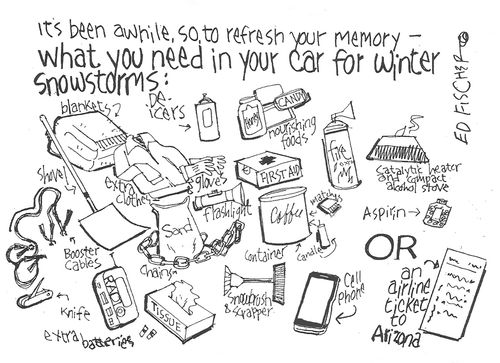 it's been awhile, so, to refresh your memory —
what you need in your car for winter
snowstorms:
ED FISCHER
blankets
De-
icers
CANDY
nourishing
foods
Fire
shovel
extra
clothes
gloves
FIRST AID
catalytic heater
and compact
alcohol stove
flashlight
Sand
Coffee
matches
Aspirin
Booster
Cables
chains
container
candle
OR
an
airline
ticket
to
Arizona
Knife
TISSUE
Snowbrush
& scrapper
Cell
phone
extra batteries